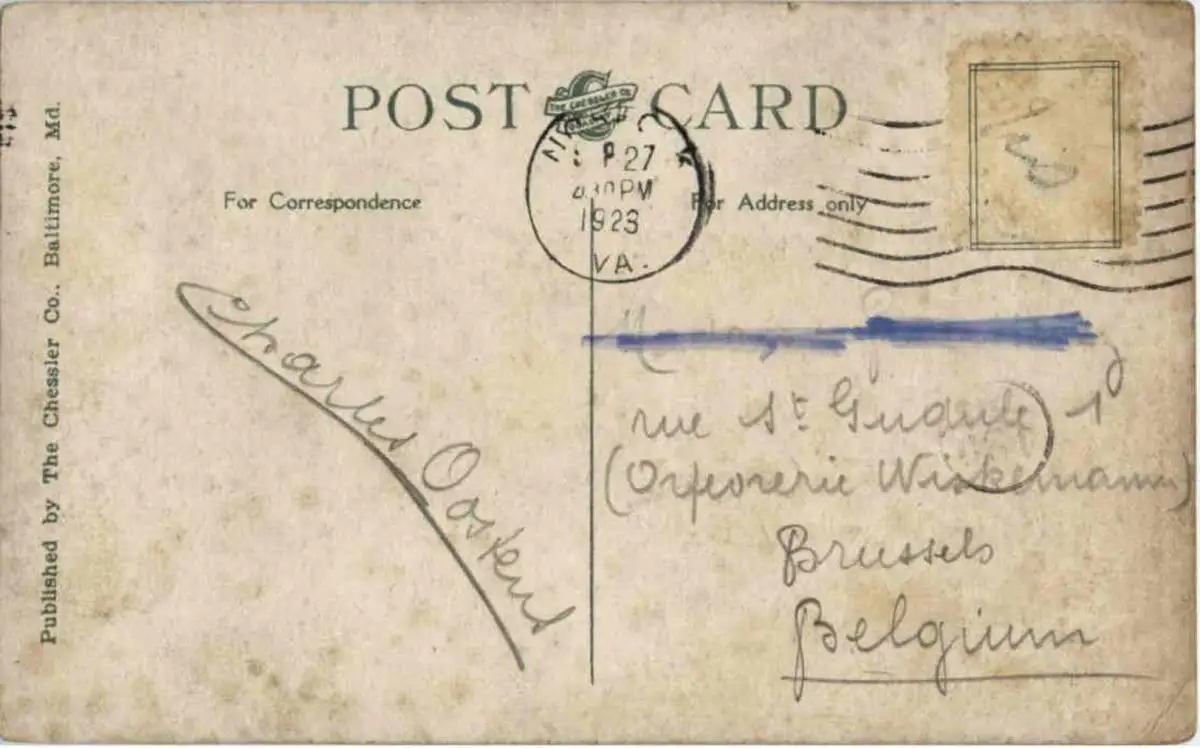 POST CARD
THE CHESSLER CO.
For Correspondence
For Address only
P 27
4 30 PM
1923
VA.
Published by The Chessler Co., Baltimore, Md.
Charles Oostend
rue St Gudule 1
(Orfevrerie Wiskemann)
Brussels
Belgium